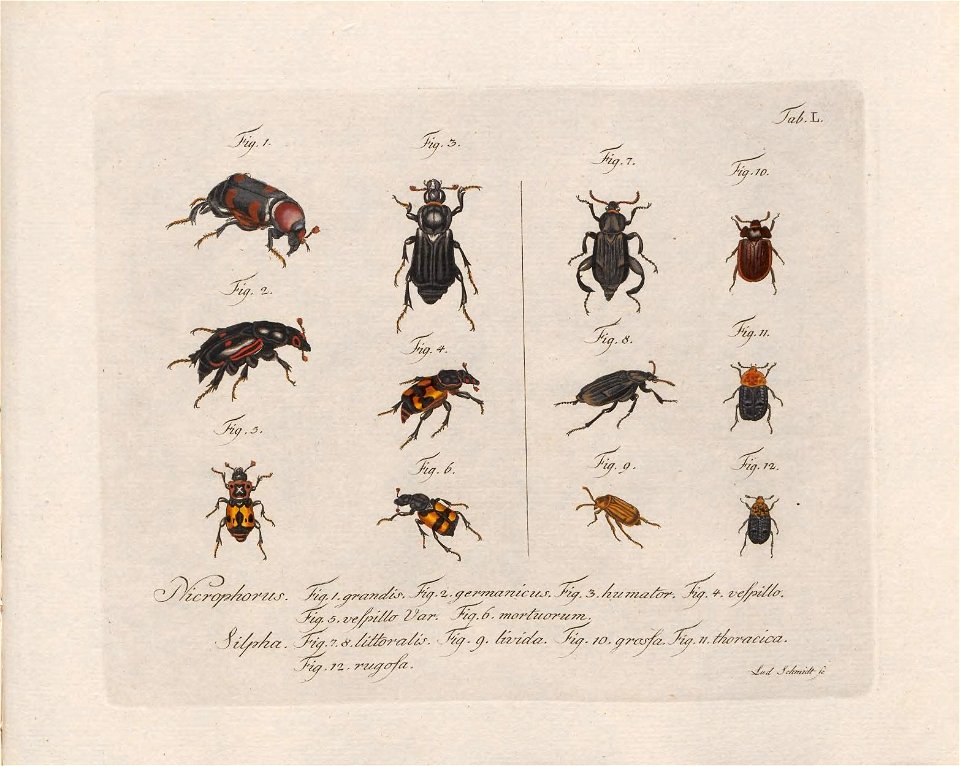 Tab. L.
Fig. 1.
Fig. 3.
Fig. 7.
Fig. 10.
Fig. 2.
Fig. 4.
Fig. 8.
Fig. 11.
Fig. 3.
Fig. 6.
Fig. 9.
Fig. 12.
Nicrophorus. Fig. 1. grandis. Fig. 2. germanicus. Fig. 3. humator. Fig. 4. veſpillo.
Fig. 5. veſpillo Var. Fig. 6. mortuorum.
Silpha. Fig. 7. 8. littoralis. Fig. 9. livida. Fig. 10. groſſa. Fig. 11. thoracica.
Fig. 12. rugoſa.
Lud Schmidt ſc